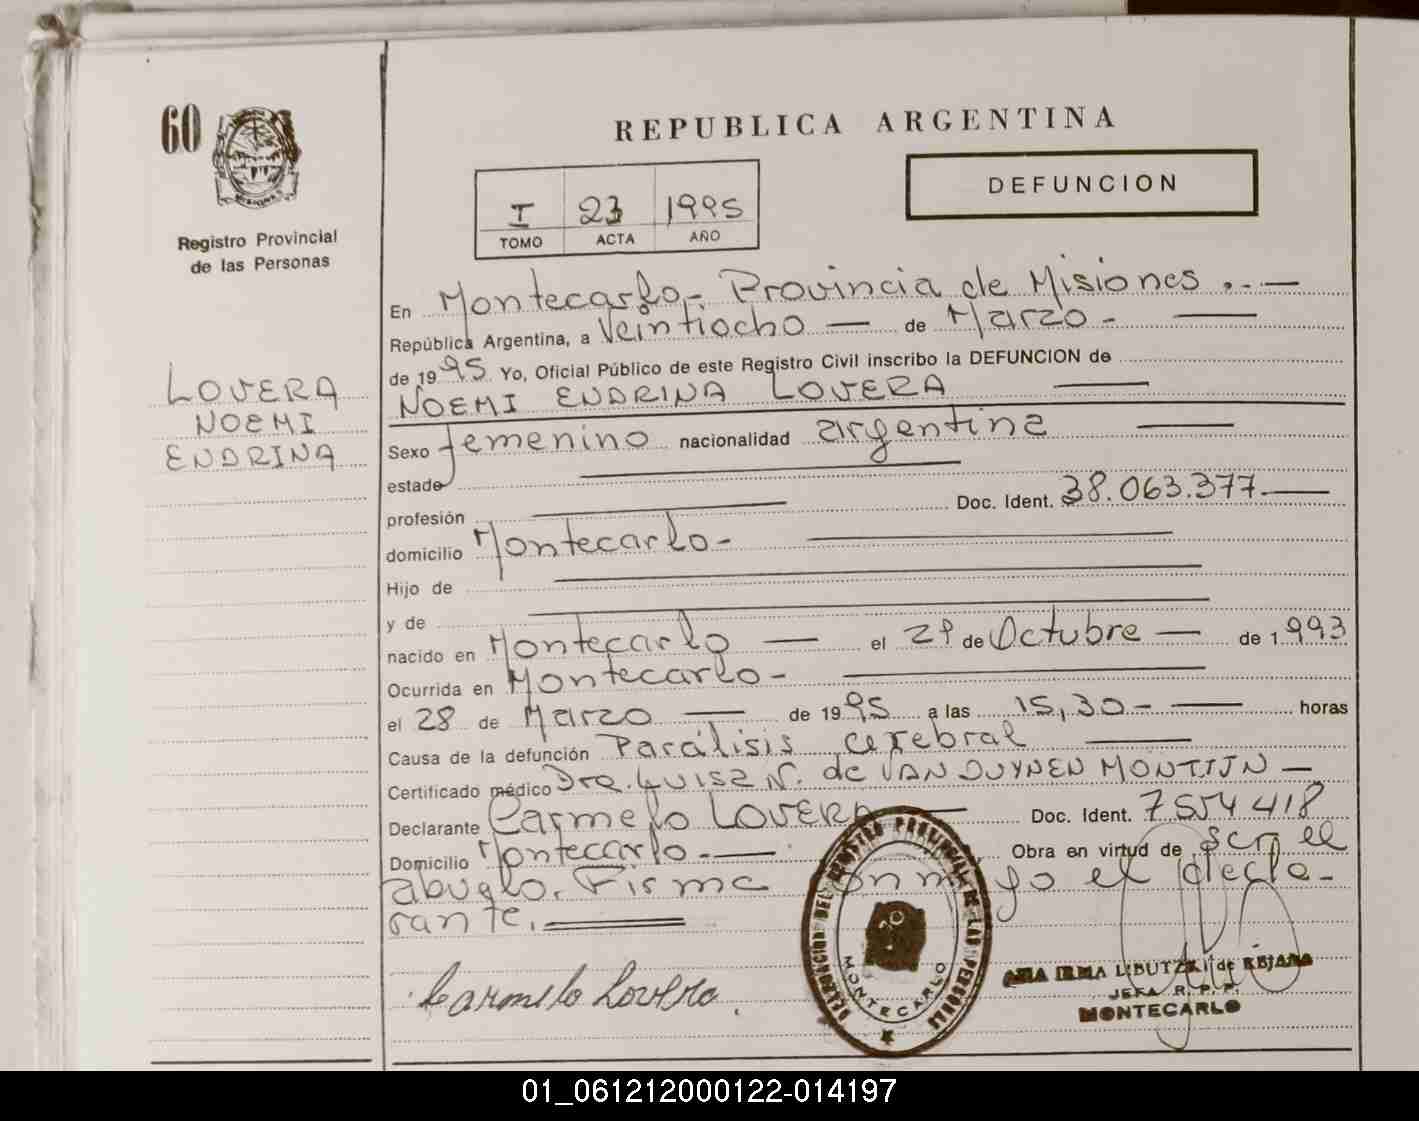 60
REPUBLICA ARGENTINA
DEFUNCION
I 23 1995
TOMO ACTA AÑO
Registro Provincial
de las Personas
LOVERA
NOEMI
ENDRINA
En Montecarlo-. Provincia de Misiones ..—
República Argentina, a Veintiocho — de Marzo - —
de 1995 Yo, Oficial Público de este Registro Civil inscribo la DEFUNCION de
NOEMI ENDRINA LOVERA —
Sexo femenino nacionalidad argentina —
estado —
profesión — Doc. Ident. 38.063.377.—
domicilio Montecarlo- —
Hijo de —
y de —
nacido en Montecarlo — el 29 de Octubre — de 1.993
Ocurrida en Montecarlo- —
el 28 de Marzo — de 1995 a las 15,30- — horas
Causa de la defunción Parálisis cerebral —
Certificado médico Dra. Luisa N. de VAN DUYNEN MONTIJN —
Declarante Carmelo LOVERA — Doc. Ident. 7554418
Domicilio Montecarlo.— Obra en virtud de ser el
abuelo. Firma conmigo el decla-
rante. =
Carmelo Lovera.
DELEGACION DEL REGISTRO PROVINCIAL DE LAS PERSONAS
MONTECARLO
IRMA LIBUTZKI de
JEFA R. P. P.
MONTECARLO
01_061212000122-014197